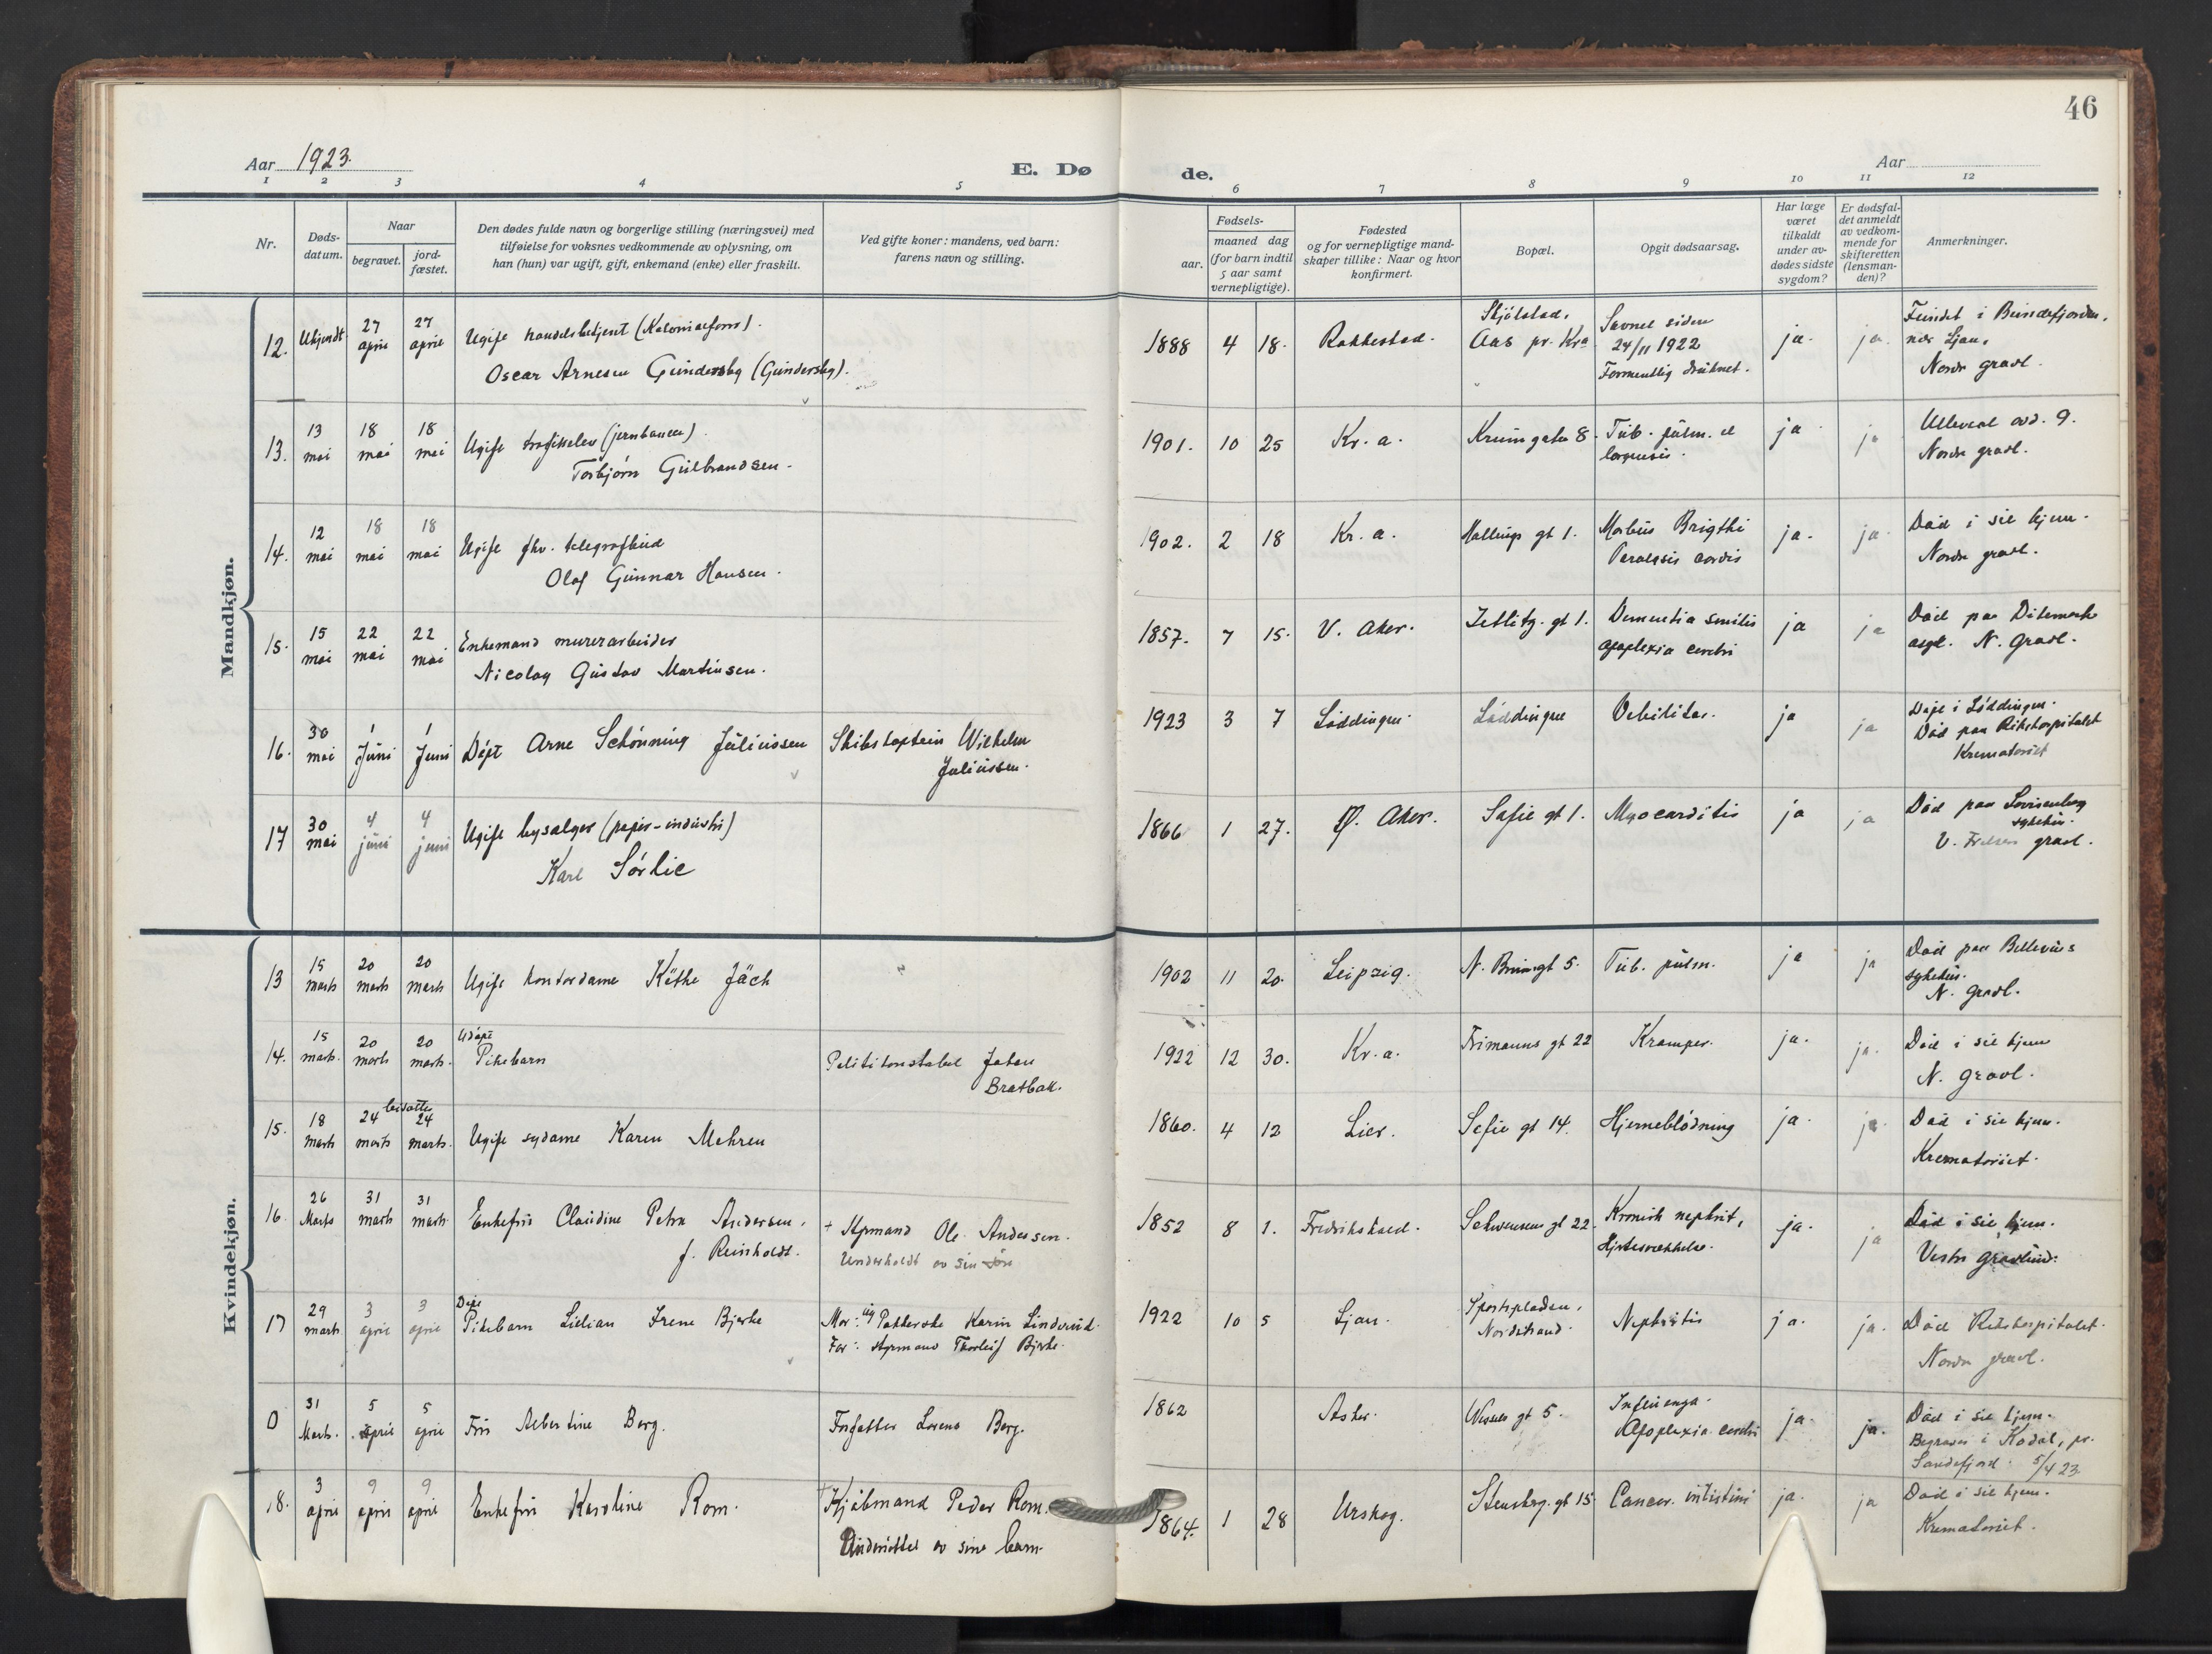 46
Aar 1923.
E. Døde.
Aar
1 2 3 4 5 6 7 8 9 10 11 12
Nr.
Døds-
datum.
Naar
begravet.
jord-
fæstet.
Den dødes fulde navn og borgerlige stilling (næringsvei) med
tilføielse for voksnes vedkommende av oplysning, om
han (hun) var ugift, gift, enkemand (enke) eller fraskilt.
Ved gifte koner: mandens, ved barn:
farens navn og stilling.
Fødsels-
aar.
maaned dag
(for barn indtil
5 aar samt
vernepligtige).
Fødested
og for vernepligtige mand-
skaper tillike: Naar og hvor
konfirmert.
Bopæl.
Opgit dødsaarsag.
Har læge
været
tilkaldt
under av-
dødes sidste
sygdom?
Er dødsfal-
det anmeldt
av vedkom-
mende for
skifteretten
(lensman-
den)?
Anmerkninger.
Mandkjøn.
12. Ukjendt 27 april 27 april Ugift handelsbetjent (Kolonialforr).
Oscar Arnesen Gundersby (Gundersby).
1888 4 18. Rakkestad. Skjølstad, Aas pr. Kra Savnet siden 24/11 1922 Formentlig druknet. ja. ja. Fundet i Bundefjorden, nær Ljan. Nordr gravl.
13. 13 mai 18 mai 18 mai Ugift trafikelev (jernbanen).
Torbjørn Gulbrandsen.
1901. 10 25 Kr.a. Krumgaten 8. Tub. pulm. et laryngis. ja ja Ulleval avd. 9. Nordr gravl.
14. 12 mai 18 mai 18 mai Ugift fhv. telegrafbud
Olaf Gunnar Hansen.
1902. 2 18 Kr.a. Mallings gt 1. Morbus Brigthi Paralysis cordis ja. ja. Død i sit hjem. Nordr gravl.
15. 15 mai 22 mai 22 mai Enkemand murerarbeider
Nicolay Gustav Martinsen.
1857. 7 15. V. Aker. Zetlitz. gt 1. Dementia senilis apoplexia cerebri ja ja Død paa Dikemark asyl. N. Gravl.
16. 30 mai 1 Juni 1 Juni Døpt Arne Schønning Juliussen Skibskaptein Wilhelm Juliussen.
1923 3 7 Løddingen. Løddingen Debilitas. ja ja Døpt i Løddingen. Død paa Rikshospitalet Krematoriet
17 30 mai 4 juni 4 juni Ugift bysælger (papir-industri)
Karl Sørlie
1866 1 27. Ø. Aker. Sofie gt 1. Myocarditis ja ja Død paa Lovisenberg sykehus. V. Frelsers gravl.
Kvindekjøn.
13 15 marts 20 marts 20 marts Ugift kontordame Käthe Jäch
1902 11 20. Leipzig. N. Brungt 5. Tub. pulm. ja ja Død paa Bellevues sykehus. N. Gravl.
14. 15 marts. 20 marts 20 marts. Udøpt Pikebarn Politikonstabel Johan Bratbak.
1922 12 30. Kr.a. Frimanns gt 22 Kramper. ja. ja. Død i sit hjem N. Gravl.
15. 18 marts 24 marts bisatte 24 marts. Ugift sydame Karen Mehren
1860. 4 12 Lier. Sofie gt 14. Hjerneblødning ja. ja. Død i sit hjem. Krematoriet.
16. 26 Marts 31 marts 31 marts. Enkefru Claudine Petra Andersen,
f. Reinholdt.
+ Styrmand Ole Andersen.
Underholdt av sin søn
1852 8 1. Fredrikshald. Schwensens gt 22. Kronisk nephrit, Hjertesvækkelse. ja. ja Død i sit hjem. Vestre Gravlund.
17 29 marts 3 april 3 april Døpt Pikebarn Lilian Irene Bjerke
Mor: ug Pakkerske Karin Lindsrud.
Far: styrmand Thorleif Bjerke.
1922 10 5 Ljan. Sportspladsen, Nordstrand. Nephritis ja. ja. Død Rikshospitalet. Nordr gravl.
0 31 Marts. 5 april 5 april Fru Albertine Berg. Forfatter Lorens Berg.
1862 Asker. Wessels gt 5. Influenza. Apoplexia cerebri ja. ja. Død i sit hjem. Begraves i Kodal, pr. Sandefjord. 5/4 23.
18. 3 april 9 april 9 april Enkefru Karoline Rom. + Kjøbmand Peder Rom.
Understøttet av sine barn.
1864. 1 28 Urskog. Stensberg. gt 15 Cancer. intistini ja. ja Død i sit hjem. Krematoriet.